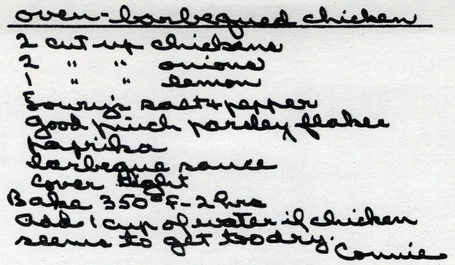 oven-barbequed chicken
2 cut up chickens
2 " " onions
1 " " lemon
salt & pepper
good pinch parsley flakes
paprika
barbeque sauce
cover tight
Bake 350°F - 2 hrs
add 1 cup of water if chicken
seems to get too dry.
Connie